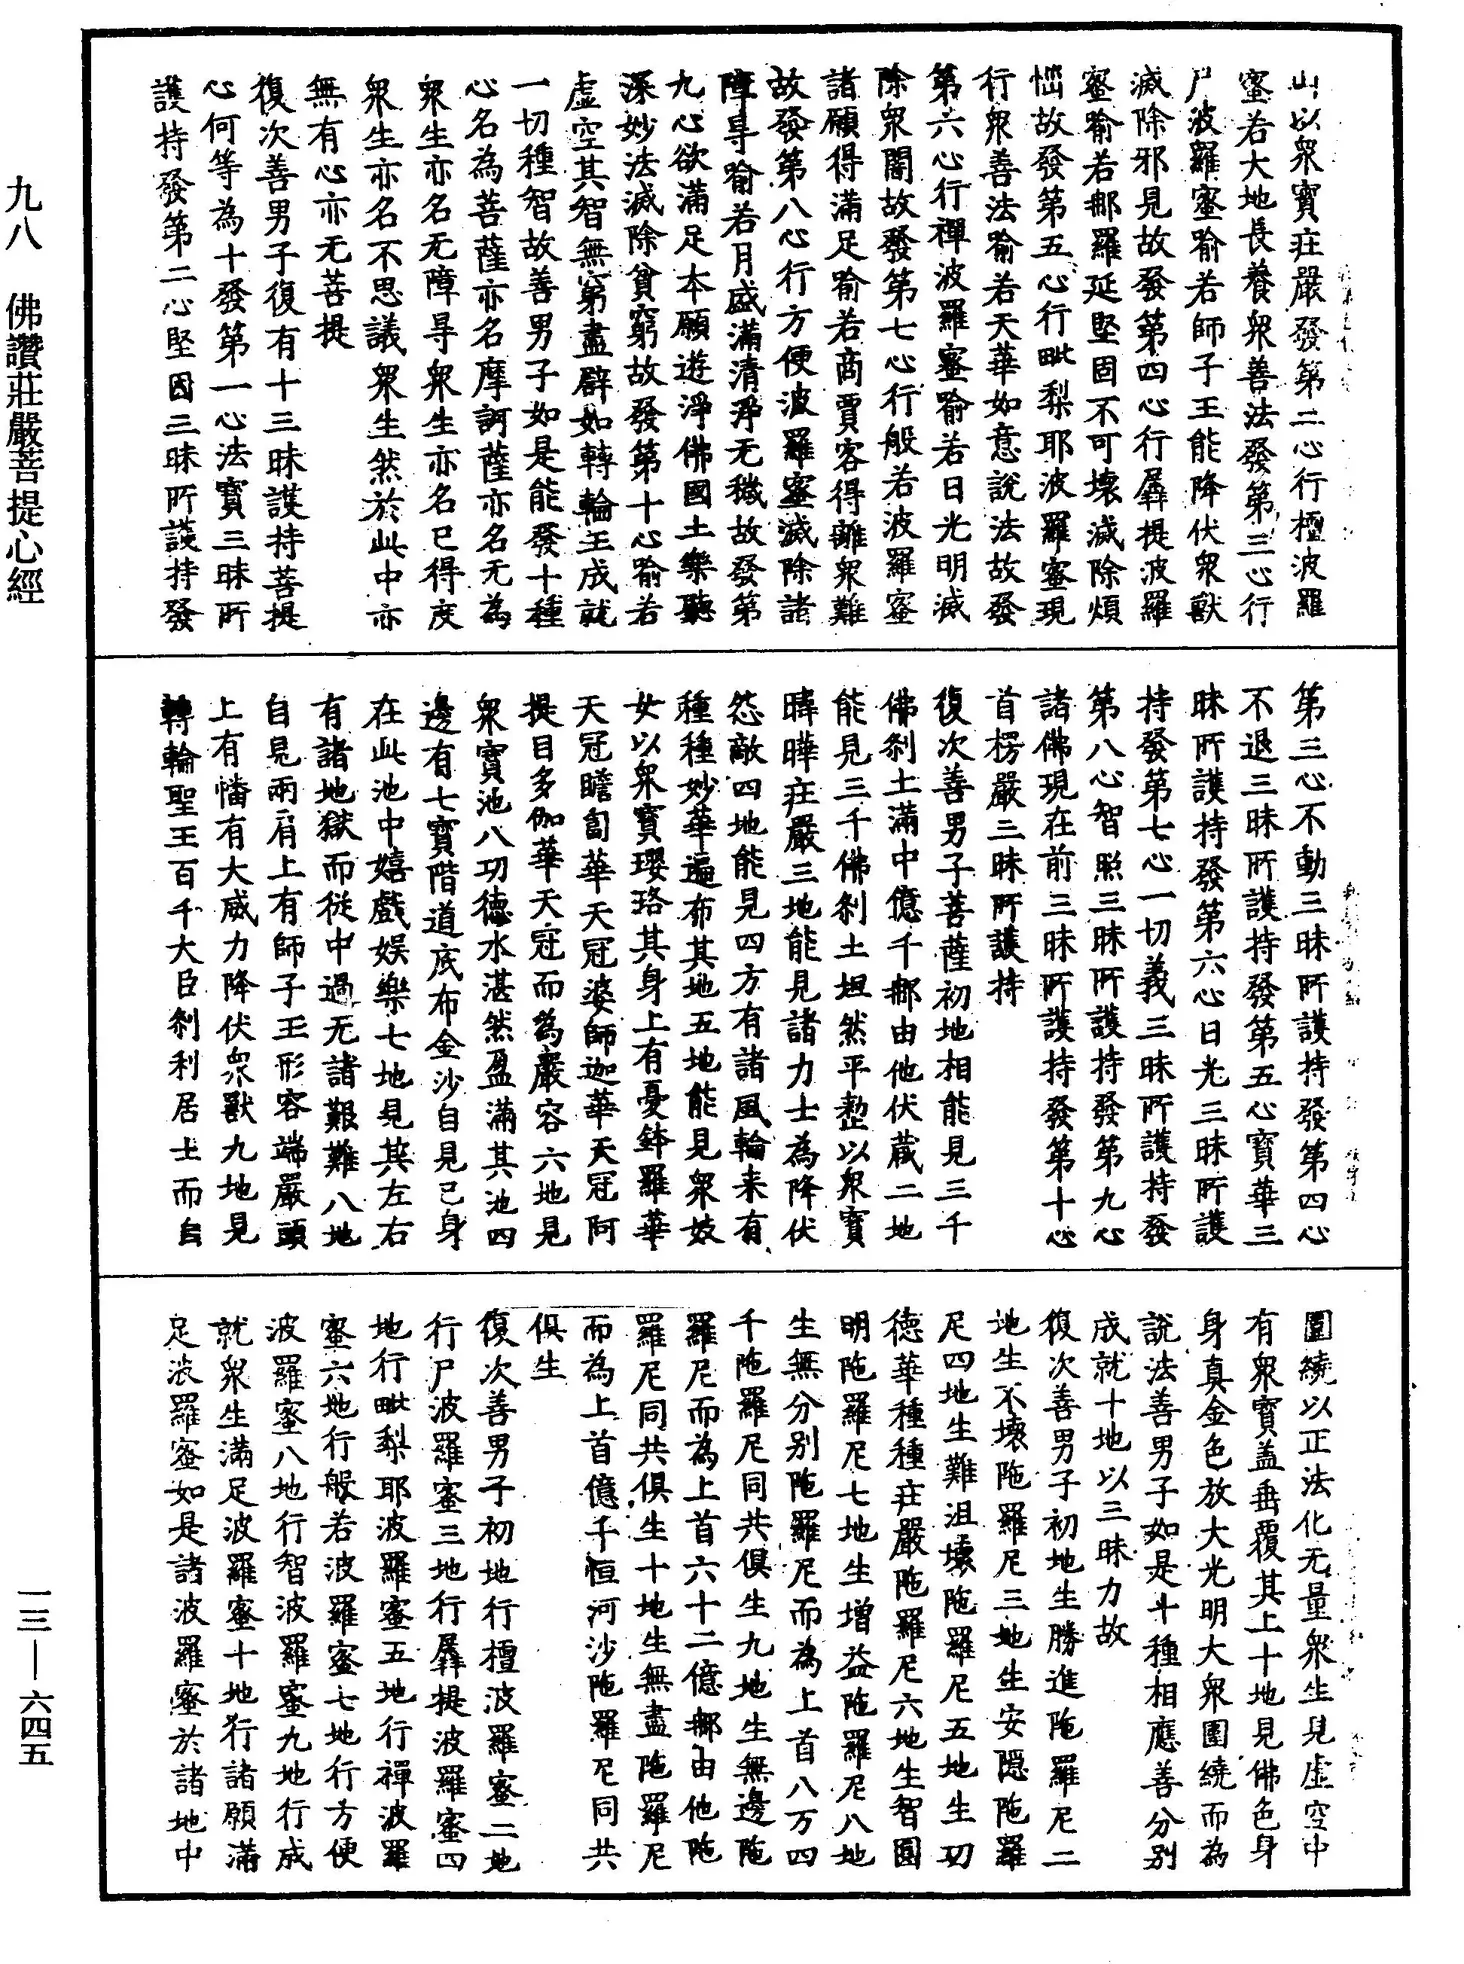 山以眾寶莊嚴發第二心行檀波羅
蜜若大地長養眾善法發第三心行
尸波羅蜜喻若師子王能降伏眾獸
滅除邪見故發第四心行羼提波羅
蜜喻若那羅延堅固不可壞滅除煩
惱故發第五心行毗梨耶波羅蜜現
行眾善法喻若天華如意說法故發
第六心行禪波羅蜜喻若日光明滅
除眾闇故發第七心行般若波羅蜜
諸願得滿足喻若商賈客得離眾難
故發第八心行方便波羅蜜滅除諸
障㝵喻若月盛滿清淨无穢故發第
九心欲滿足本願遊淨佛國土樂聽
深妙法滅除貧窮故發第十心喻若
虛空其智無窮盡辟如轉輪王成就
一切種智故善男子如是能發十種
心名為菩薩亦名摩訶薩亦名无為
眾生亦名无障㝵眾生亦名已得度
眾生亦名不思議眾生然於此中亦
無有心亦无菩提
復次善男子復有十三昧護持菩提
心何等為十發第一心法寶三昧所
護持發第二心堅固三昧所護持發
第三心不動三昧所護持發第四心
不退三昧所護持發第五心寶華三
昧所護持發第六心日光三昧所護
持發第七心一切義三昧所護持發
第八心智照三昧所護持發第九心
諸佛現在前三昧所護持發第十心
首楞嚴三昧所護持
復次善男子菩薩初地相能見三千
佛剎土滿中億千那由他伏藏二地
能見三千佛剎土坦然平整以眾寶
暐曄莊嚴三地能見諸力士為降伏
怨敵四地能見四方有諸風輪来有
種種妙華遍布其地五地能見眾妓
女以眾寶瓔珞其身上有憂鉢羅華
天冠瞻蔔華天冠婆師迦華天冠阿
提目多伽華天冠而為嚴容六地見
眾寶池八功德水湛然盈滿其池四
邊有七寶階道底布金沙自見己身
在此池中嬉戲娛樂七地見其左右
有諸地獄而從中過无諸艱難八地
自見兩肩上有師子王形容端嚴頭
上有幡有大威力降伏眾獸九地見
轉輪聖王百千大臣剎利居士而自
圍繞以正法化无量眾生見虛空中
有眾寶盖垂覆其上十地見佛色身
身真金色放大光明大眾圍繞而為
說法善男子如是十種相應善分別
成就十地以三昧力故
復次善男子初地生勝進陁羅尼二
地生不壞陁羅尼三地生安隱陁羅
尼四地生難沮壞陁羅尼五地生功
德華種種莊嚴陁羅尼六地生智圓
明陁羅尼七地生增益陁羅尼八地
生無分別陁羅尼而為上首八万四
千陁羅尼同共俱生九地生無邊陁
羅尼而為上首六十二億那由他陁
羅尼同共俱生十地生無盡陁羅尼
而為上首億千恒河沙陁羅尼同共
俱生
復次善男子初地行檀波羅蜜二地
行尸波羅蜜三地行羼提波羅蜜四
地行毗梨耶波羅蜜五地行禪波羅
蜜六地行般若波羅蜜七地行方便
波羅蜜八地行智波羅蜜九地行成
就眾生滿足波羅蜜十地行諸願滿
足波羅蜜如是諸波羅蜜於諸地中
九八　佛讚莊嚴菩提心經
一三—六四五